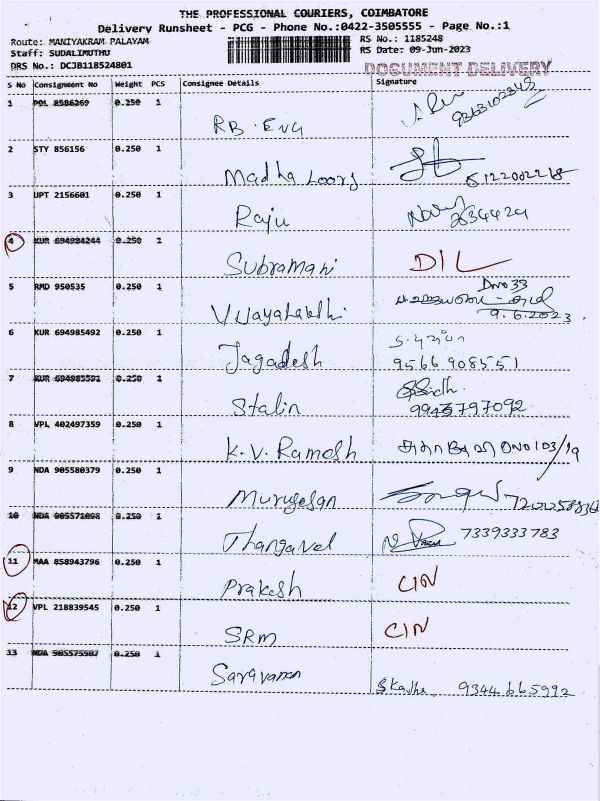 THE PROFESSIONAL COURIERS, COIMBATORE
Delivery Runsheet - PCG - Phone No.:0422-3505555 - Page No.:1
Route: MANIYAKRAM PALAYAM
RS No.: 1185248
Staff: SUDALIMUTHU
RS Date: 09-Jun-2023
DRS No.: DCJB118524801
DOCUMENT DELIVERY
S No Consignment No Weight PCS Consignee Details Signature
1 POL 8586269 0.250 1
RB. ENG
2 STY 856156 0.250 1
Madha Loors
3 UPT 2156601 0.250 1
Raju
4 KUR 694984244 0.250 1
Subramani DIL
5 RMD 950535 0.250 1
D.NO 33
Vijayalakshi
9.6.2023
6 KUR 694985492 0.250 1
Jagadesh 9566908551
7 KUR 694985591 0.250 1
Stalin 9943797092
8 VPL 402497359 0.250 1
K.V. Ramesh DNO 103/19
9 NDA 905580379 0.250 1
Murugesan
10 NDA 905571098 0.250 1
Thangavel 7339333783
11 MAA 858943796 0.250 1
Prakesh CIN
12 VPL 218839545 0.250 1
SRM CIN
13 NDA 905575907 0.250 1
Saravanan 9344665992